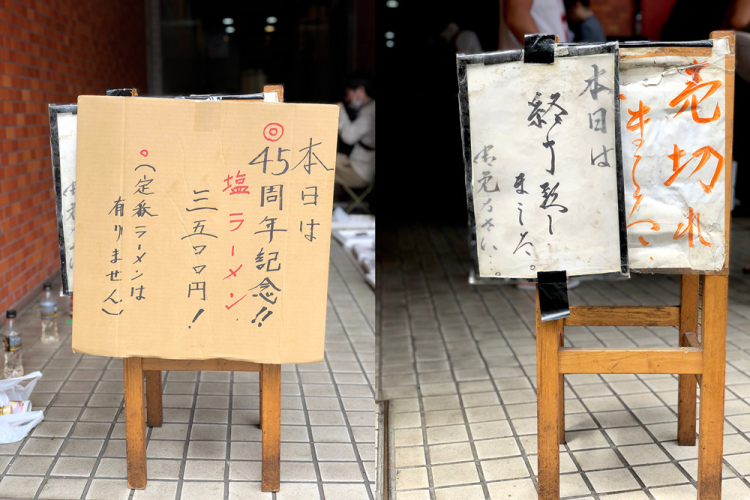 本日は
◎45周年記念!!
塩ラーメン
三五〇〇円!
○(定番ラーメンは
有りません。)
本日は
終了致し
ました。
御免ください。
売切れ
ました